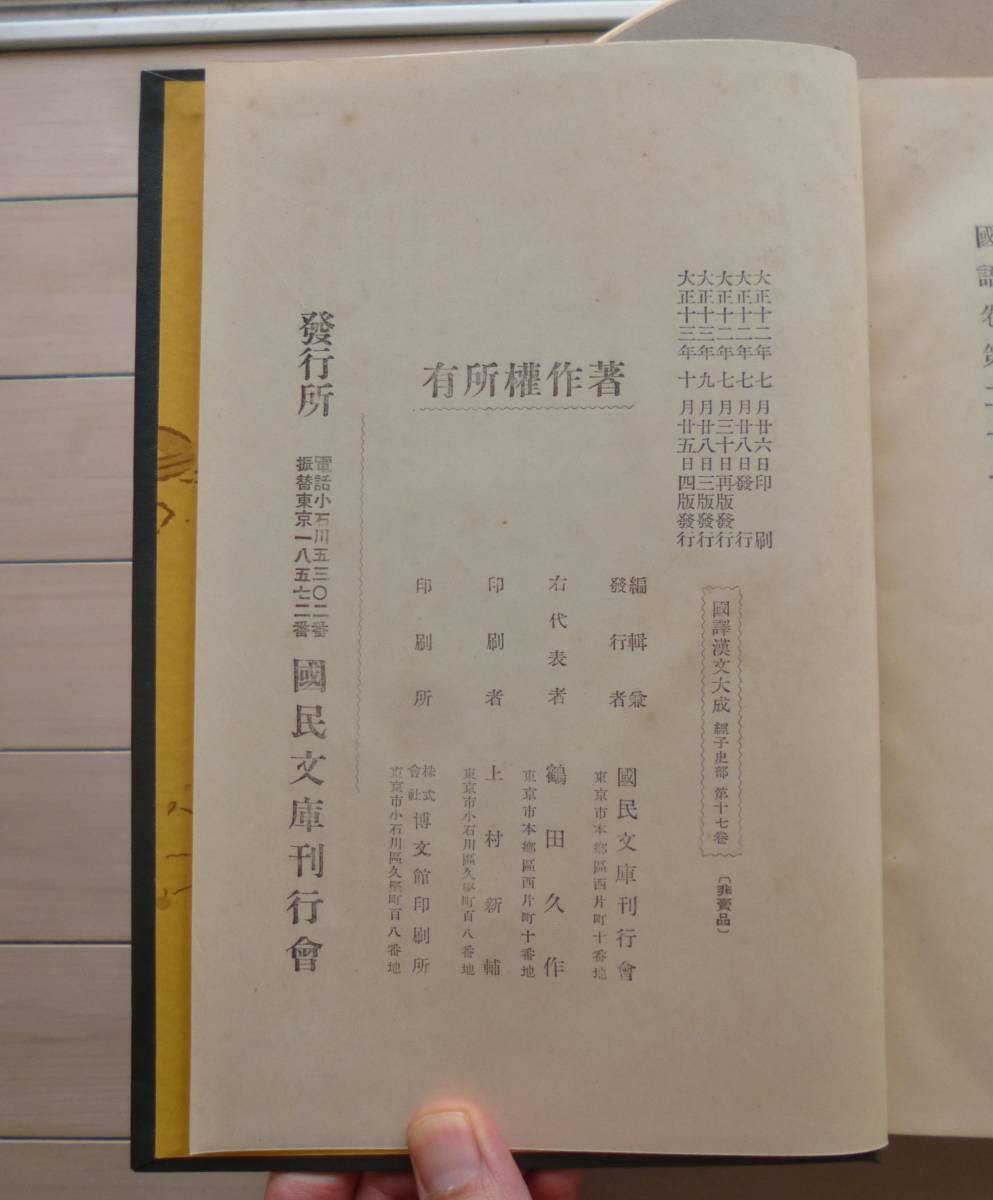 大正十二年七月廿六日印刷
大正十二年七月廿八日發行
大正十二年七月三十日再版發行
大正十三年九月廿八日三版發行
大正十三年十月廿五日四版發行
國譯漢文大成 經子史部 第十七卷
〔非賣品〕
著作權所有
編輯兼
發行者
國民文庫刊行會
東京市本鄕區西片町十番地
右代表者
鶴田久作
東京市本鄕區西片町十番地
印刷者
上村新輔
東京市小石川區久堅町百八番地
印刷所
株式
會社
博文館印刷所
東京市小石川區久堅町百八番地
發行所
電話小石川五三〇二番
振替東京一八五七二番
國民文庫刊行會
國語卷第二十一